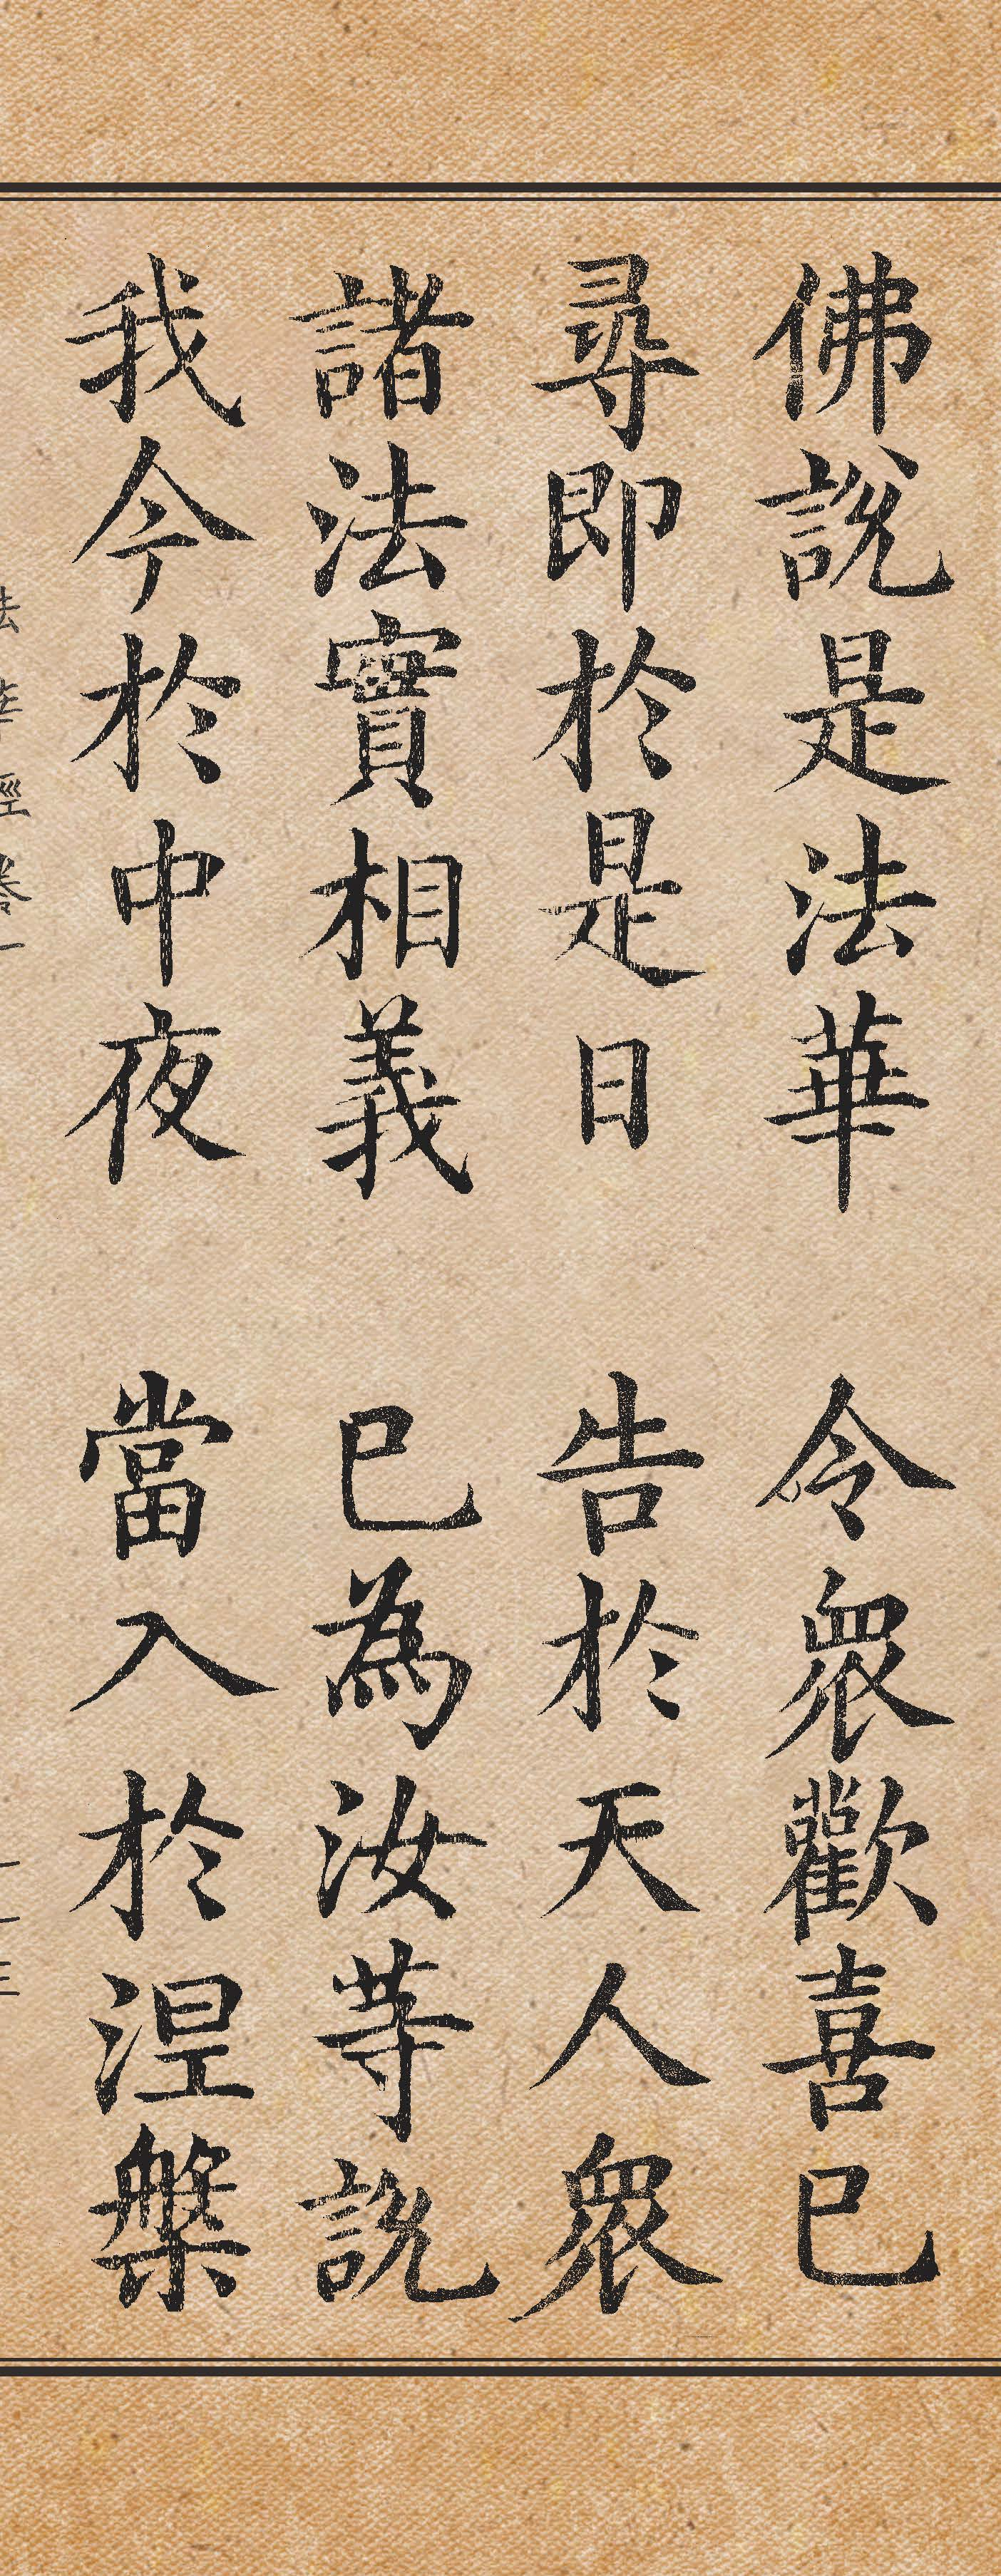 佛說是法華　令眾歡喜已
尋即於是日　告於天人眾
諸法實相義　已為汝等說
我今於中夜　當入於涅槃
法華經卷一　一一三